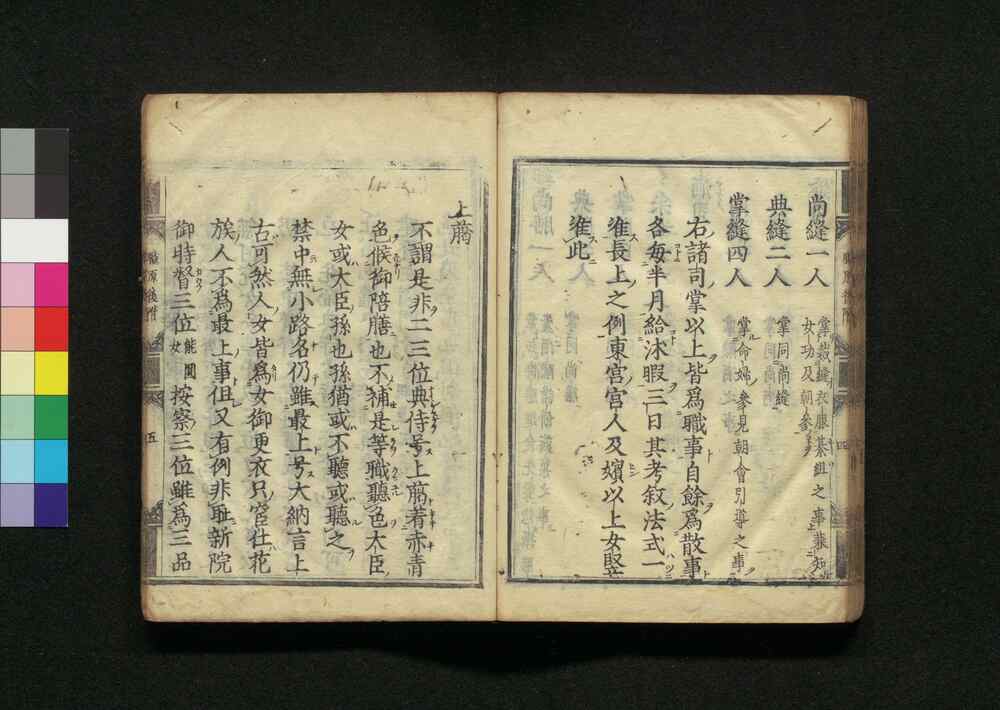 尚縫一人 掌裁縫衣服纂組之事兼知
女功及朝參
典縫二人 掌同尚縫
掌縫四人 掌命婦參見朝會引導之事
右諸司掌以上皆為職事自餘為散事
各毎半月給沐暇三日其考叙法式一
准長上之例東宮宮人及嬪以上女竪
准此
四
上﨟
不謂是非二三位典侍号上﨟著赤青
色候御陪膳也不補是等職聽色大臣
女或大臣孫也孫猶或不聽或聽之
禁中無小路名仍雖最上号大納言上
古可然人女皆為女御更衣只官仕花
族人不為最上事但又有例非耻新院
御時督三位 按察三位雖為三品
職原後附
五